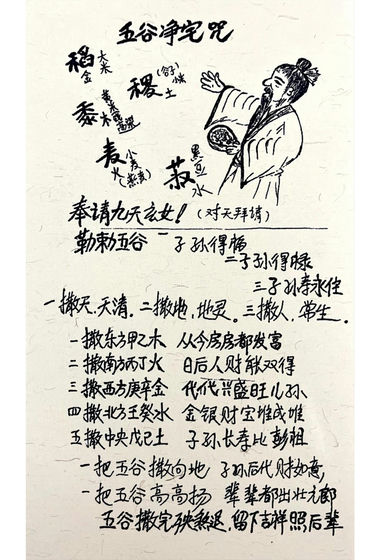 五谷净宅咒
稻 大米
金
稷 (谷子)
土
黍 木
麦 小麦
火 (荞麦)
菽 黑豆
水
奉请九天玄女! (对天拜请)
勒勅五谷 一子孙得福
二子孙得禄
三子孙寿永住
一撒天,天清.二撒地,地灵.三撒人,常生.
一撒东方甲乙木 从今房房都发富
二撒南方丙丁火 日后人财能双得
三撒西方庚辛金 代代兴盛旺儿孙
四撒北方壬癸水 金银财宝堆成堆
五撒中央戊己土 子孙长寿比彭祖
一把五谷撒向地 子孙后代财如意,
一把五谷高高扬 辈辈都出壮元郎
五谷撒完殃煞退,留下吉祥照后辈